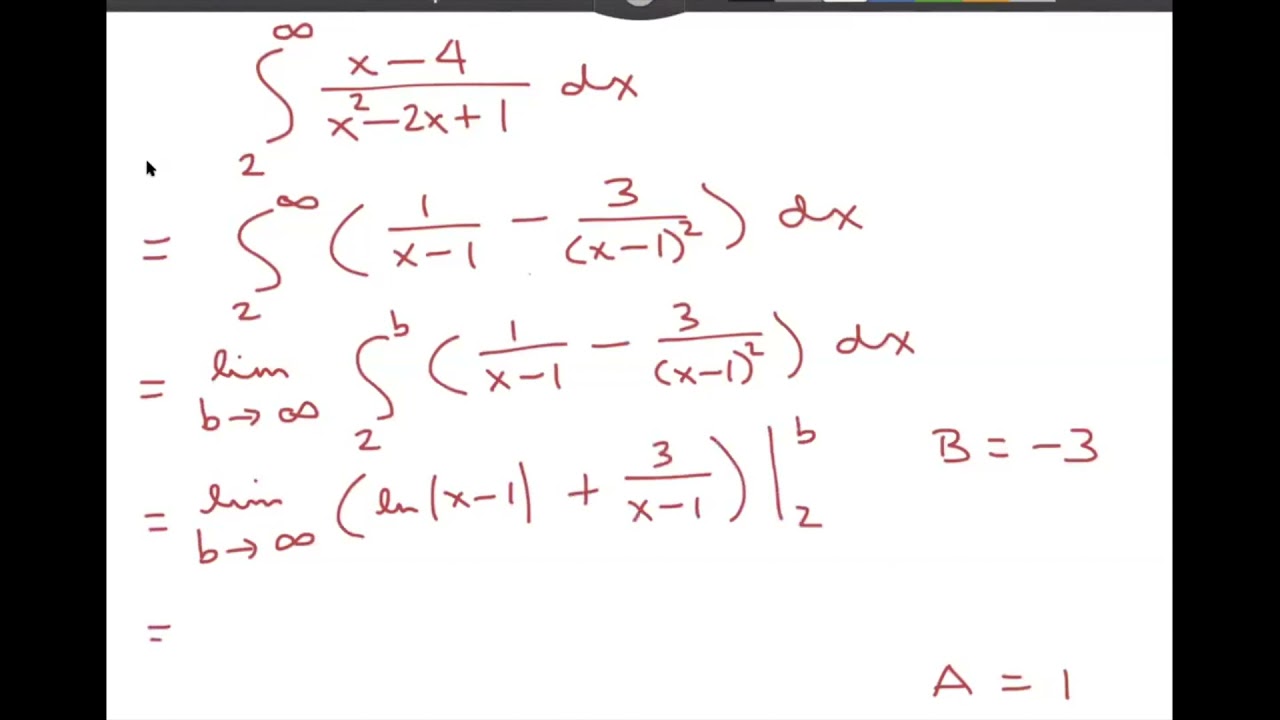 ∫₂^∞ (x − 4)/(x² − 2x + 1) dx
= ∫₂^∞ ( 1/(x − 1) − 3/(x − 1)² ) dx
= lim b→∞ ∫₂^b ( 1/(x − 1) − 3/(x − 1)² ) dx
B = −3
= lim b→∞ ( ln|x − 1| + 3/(x − 1) ) |₂^b
=
A = 1